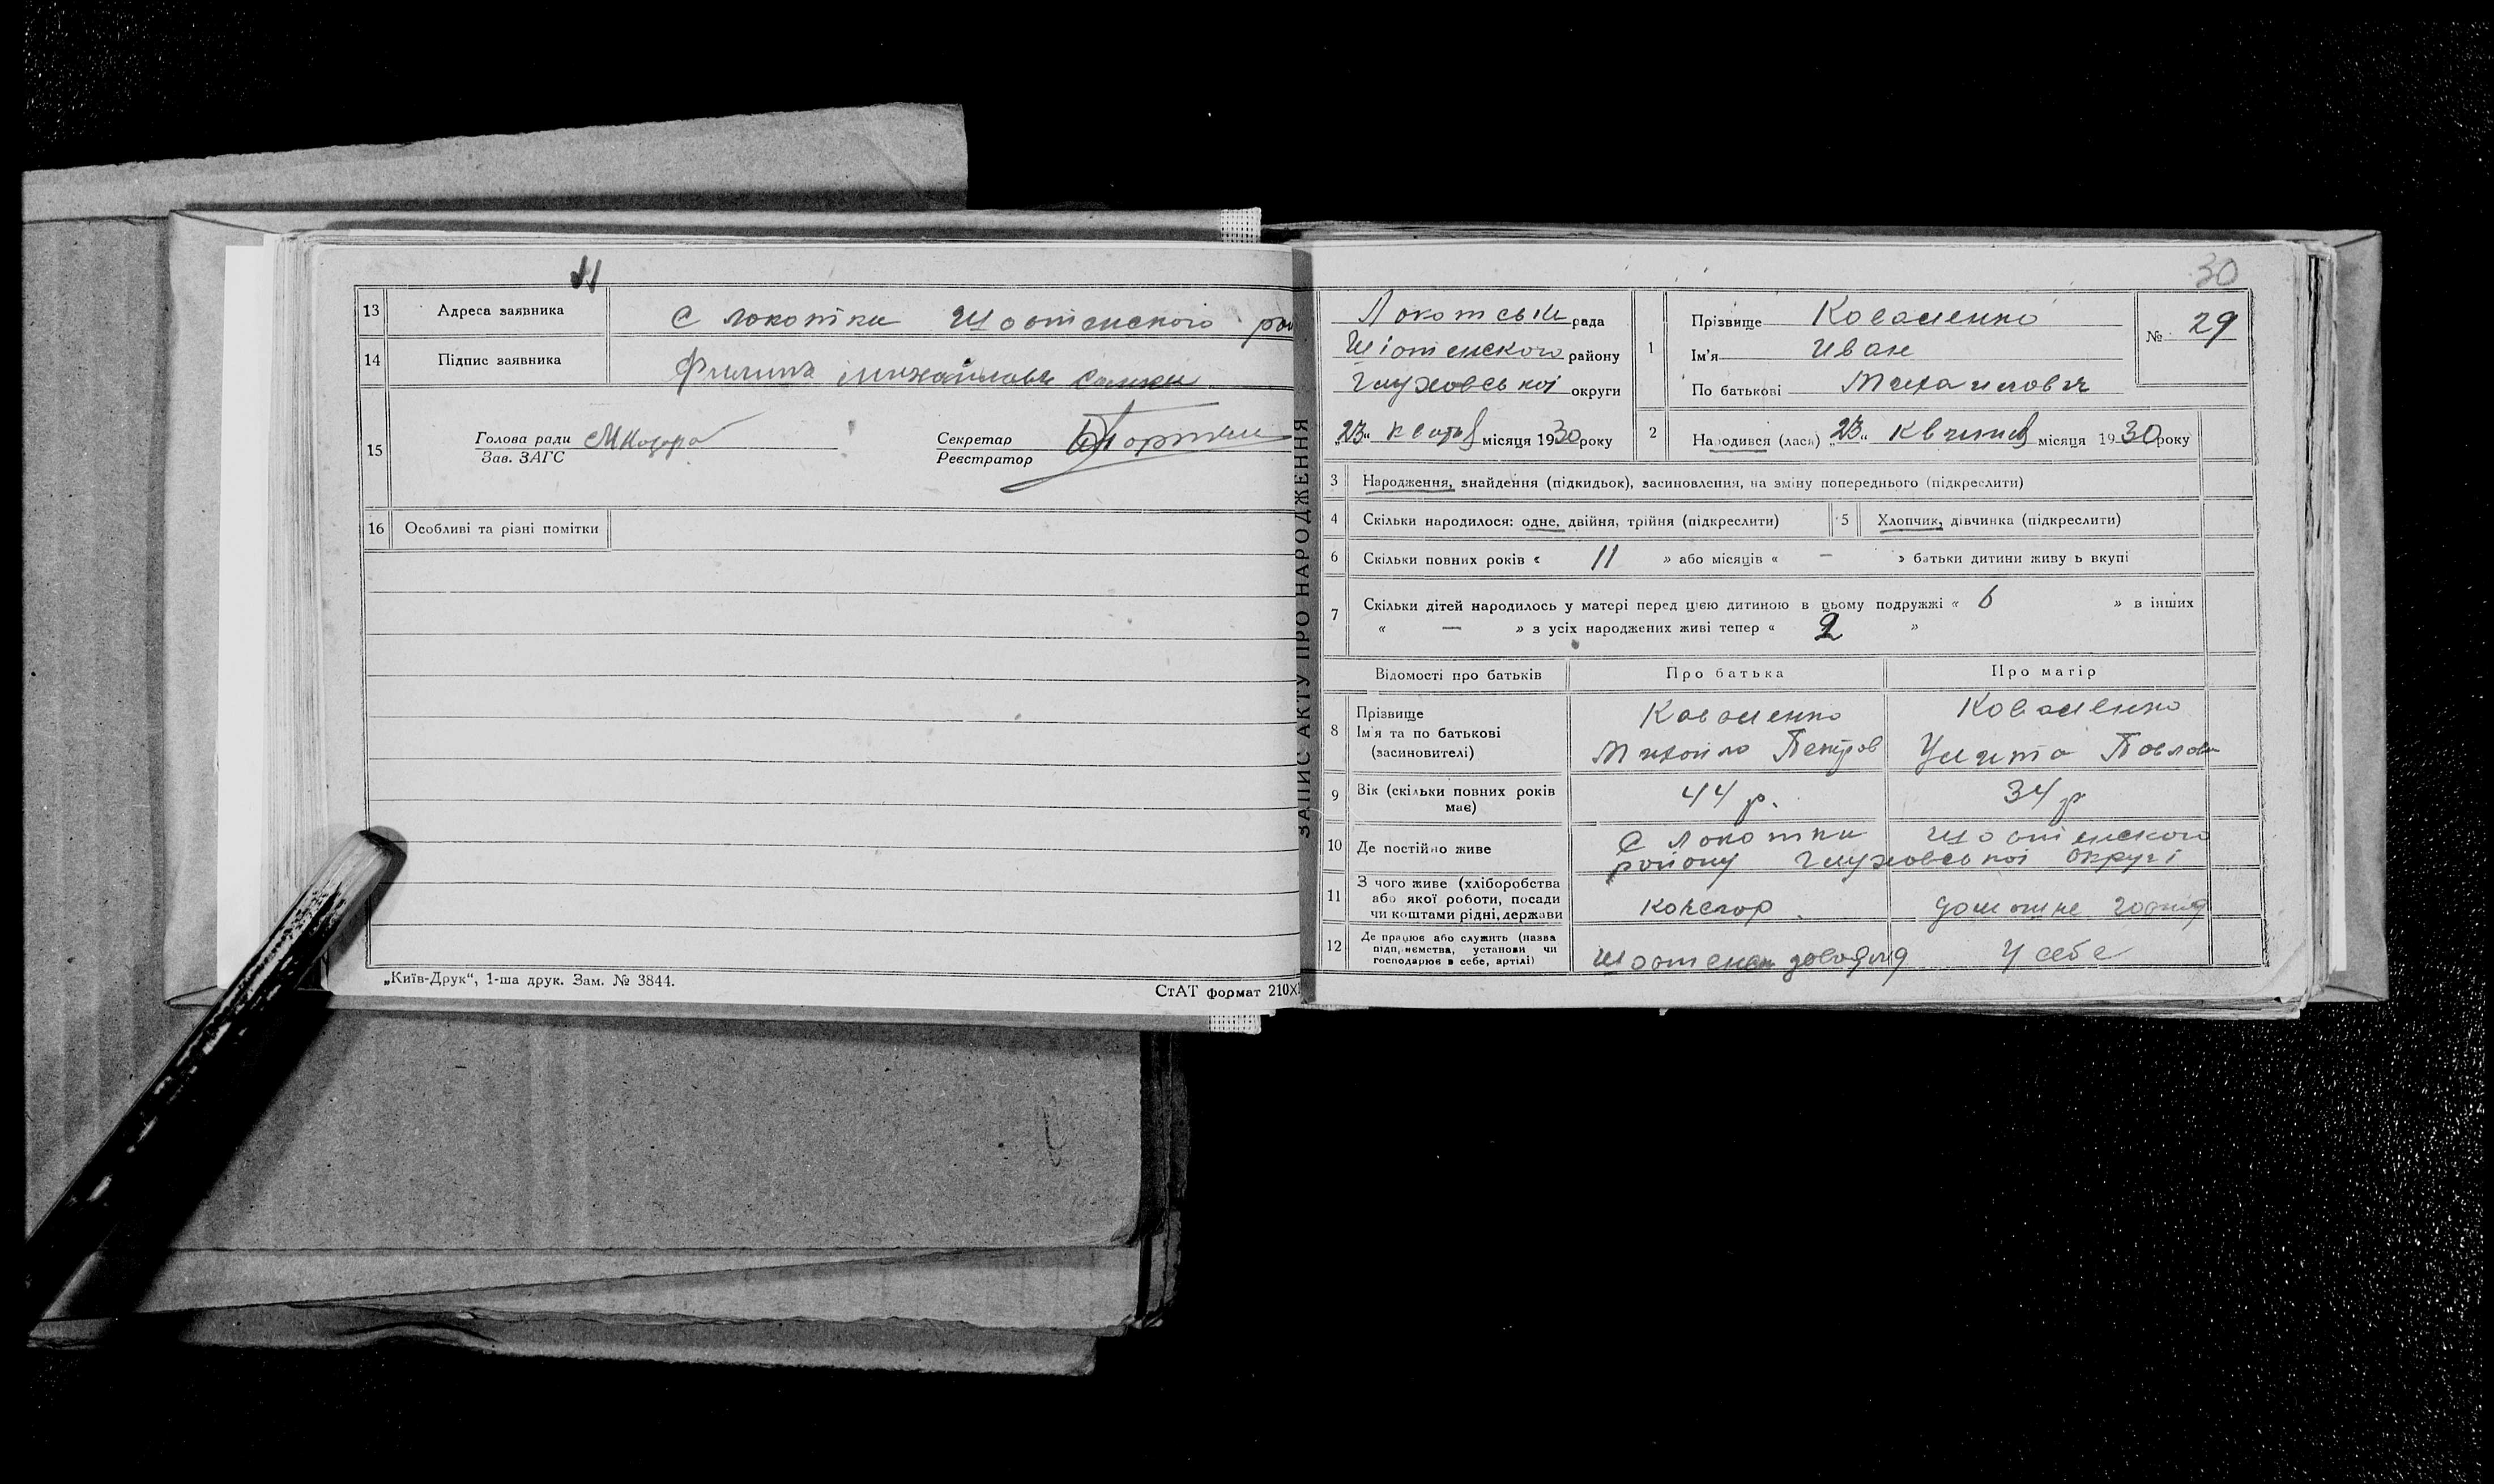 11
13 Адреса заявника С Локотки Шостенского рай
14 Підпис заявника Филипа Михайлавь
15 Голова ради
Зав. ЗАГС
Секретар
Реєстратор
16 Особливі та різні помітки
„Київ-Друк“, 1-ша друк. Зам. № 3844.
СтАТ формат 210Х
ЗАПИС АКТУ ПРО НАРОДЖЕННЯ
30
Локотська рада
Шостенского району
Глуховської округи
„23“ квітня місяця 1930 року
1 Прізвище Коваленко
Ім'я Иван
По батькові Михайлович
№ 29
2 Народився (лася) „23“ квітня місяця 1930 року
3 Народження, знайдення (підкидьок), засиновлення, на зміну попереднього (підкреслити)
4 Скільки народилося: одне, двійня, трійня (підкреслити)
5 Хлопчик, дівчинка (підкреслити)
6 Скільки повних років « 11 » або місяців « — » батьки дитини живу ь вкупі
7 Скільки дітей народилось у матері перед цією дитиною в цьому подружжі « 6 » в інших
« — » з усіх народжених живі тепер « 2 »
Відомості про батьків Про батька Про матір
8 Прізвище
Ім'я та по батькові
(засиновителі)
Коваленко
Михайло Петров
Коваленко
Улита Павлов
9 Вік (скільки повних років
має)
44 р.
34 р
10 Де постійно живе
С Локотки Шостенского
району Глуховської округі
11 З чого живе (хліборобства
або якої роботи, посади
чи коштами рідні, держави
домашне
12 Де працює або служить (назва
підп, иємства, установи чи
господарює в себе, артілі)
У себе